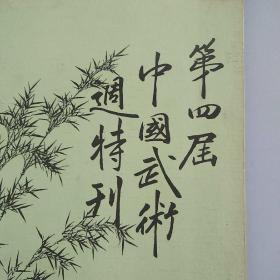 第四屆
中國武術
週特刊